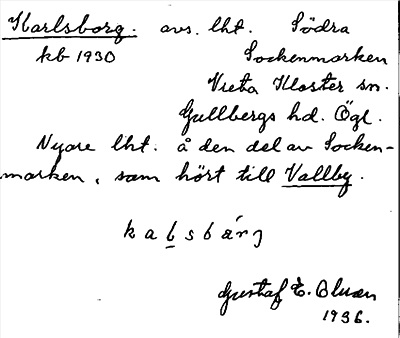 Karlsborg. avs. lht. Södra
kb 1930 Sockenmarken
Vreta Kloster sn.
Gullbergs hd. Ögl.
Nyare lht. å den del av Socken-
marken, som hört till Vallby.
Gustaf E.
1936.